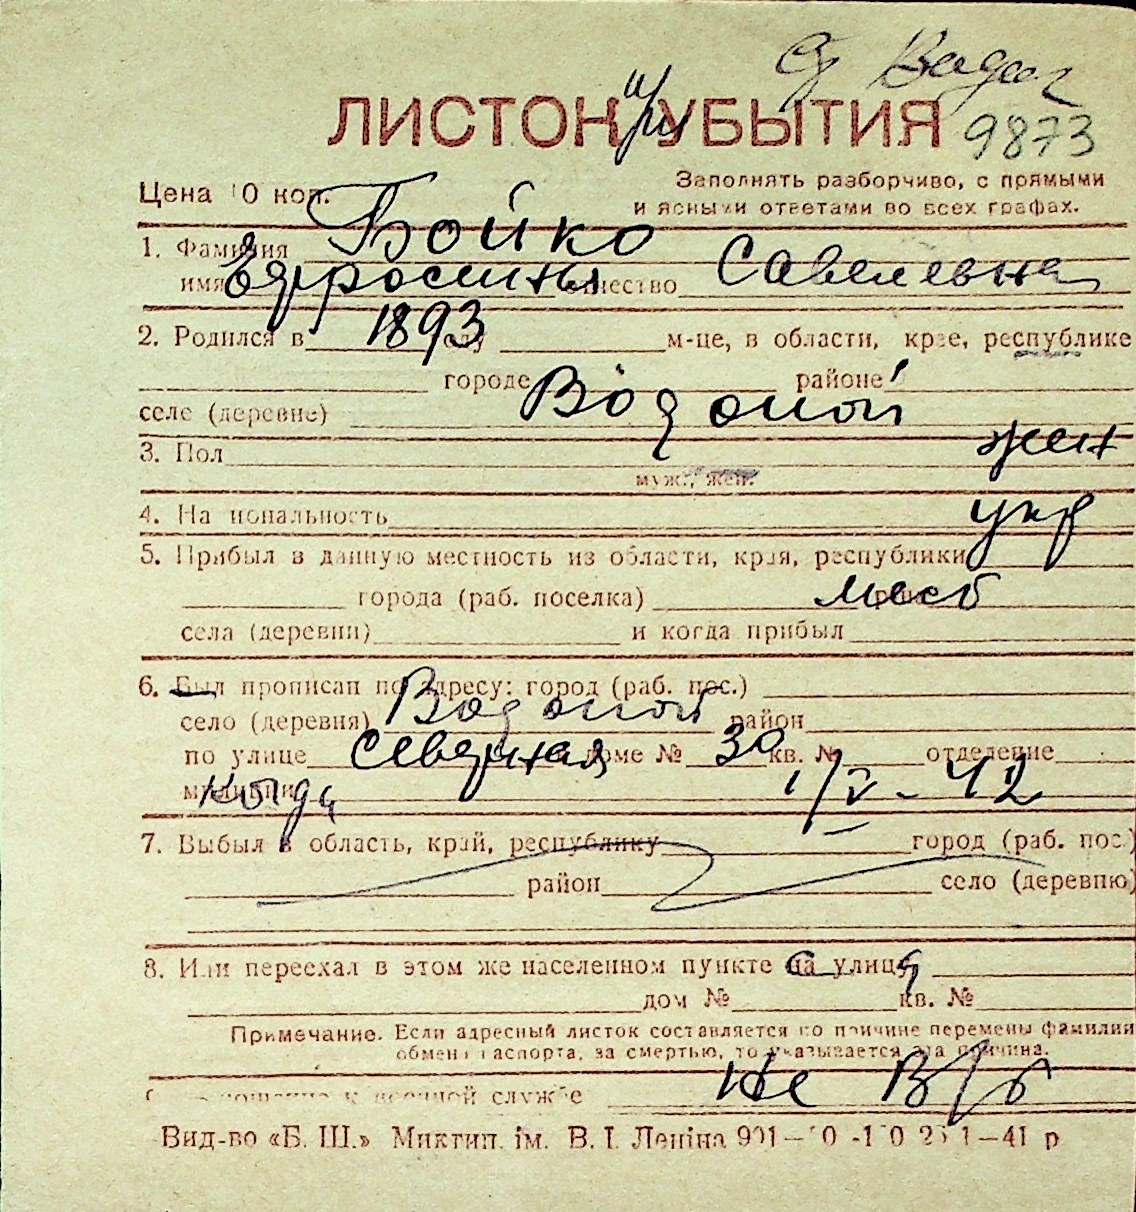 9873
ЛИСТОК УБЫТИЯ
Цена 10 коп.
Заполнять разборчиво, с прямыми
и ясными ответами во всех графах.
1. Фамилия Бойко
имя Ефросинья отчество Савелевна
2. Родился в 1893 году м-це, в области, крае, республике
городе районе
селе (деревне) Водопой
3. Пол жен
муж., жен.
4. Национальность укр
5. Прибыл в данную местность из области, края, республики
города (раб. поселка) мест
села (деревни) и когда прибыл
6. Был прописан по адресу: город (раб. пос.)
село (деревня) Водопой район
по улице Северная доме № 30 кв. № отделение
милиции когда 1/V - 42
7. Выбыл в область, край, республику город (раб. пос.)
район село (деревню)
8. Или переехал в этом же населенном пункте на улицу
дом № кв. №
Примечание. Если адресный листок составляется по причине перемены фамилии
обмена паспорта, за смертью, то указывается эта причина.
9. Отношение к военной службе не в/об
Вид-во «Б. Ш.» Миктип. ім. В. І. Леніна 901—10 41 р